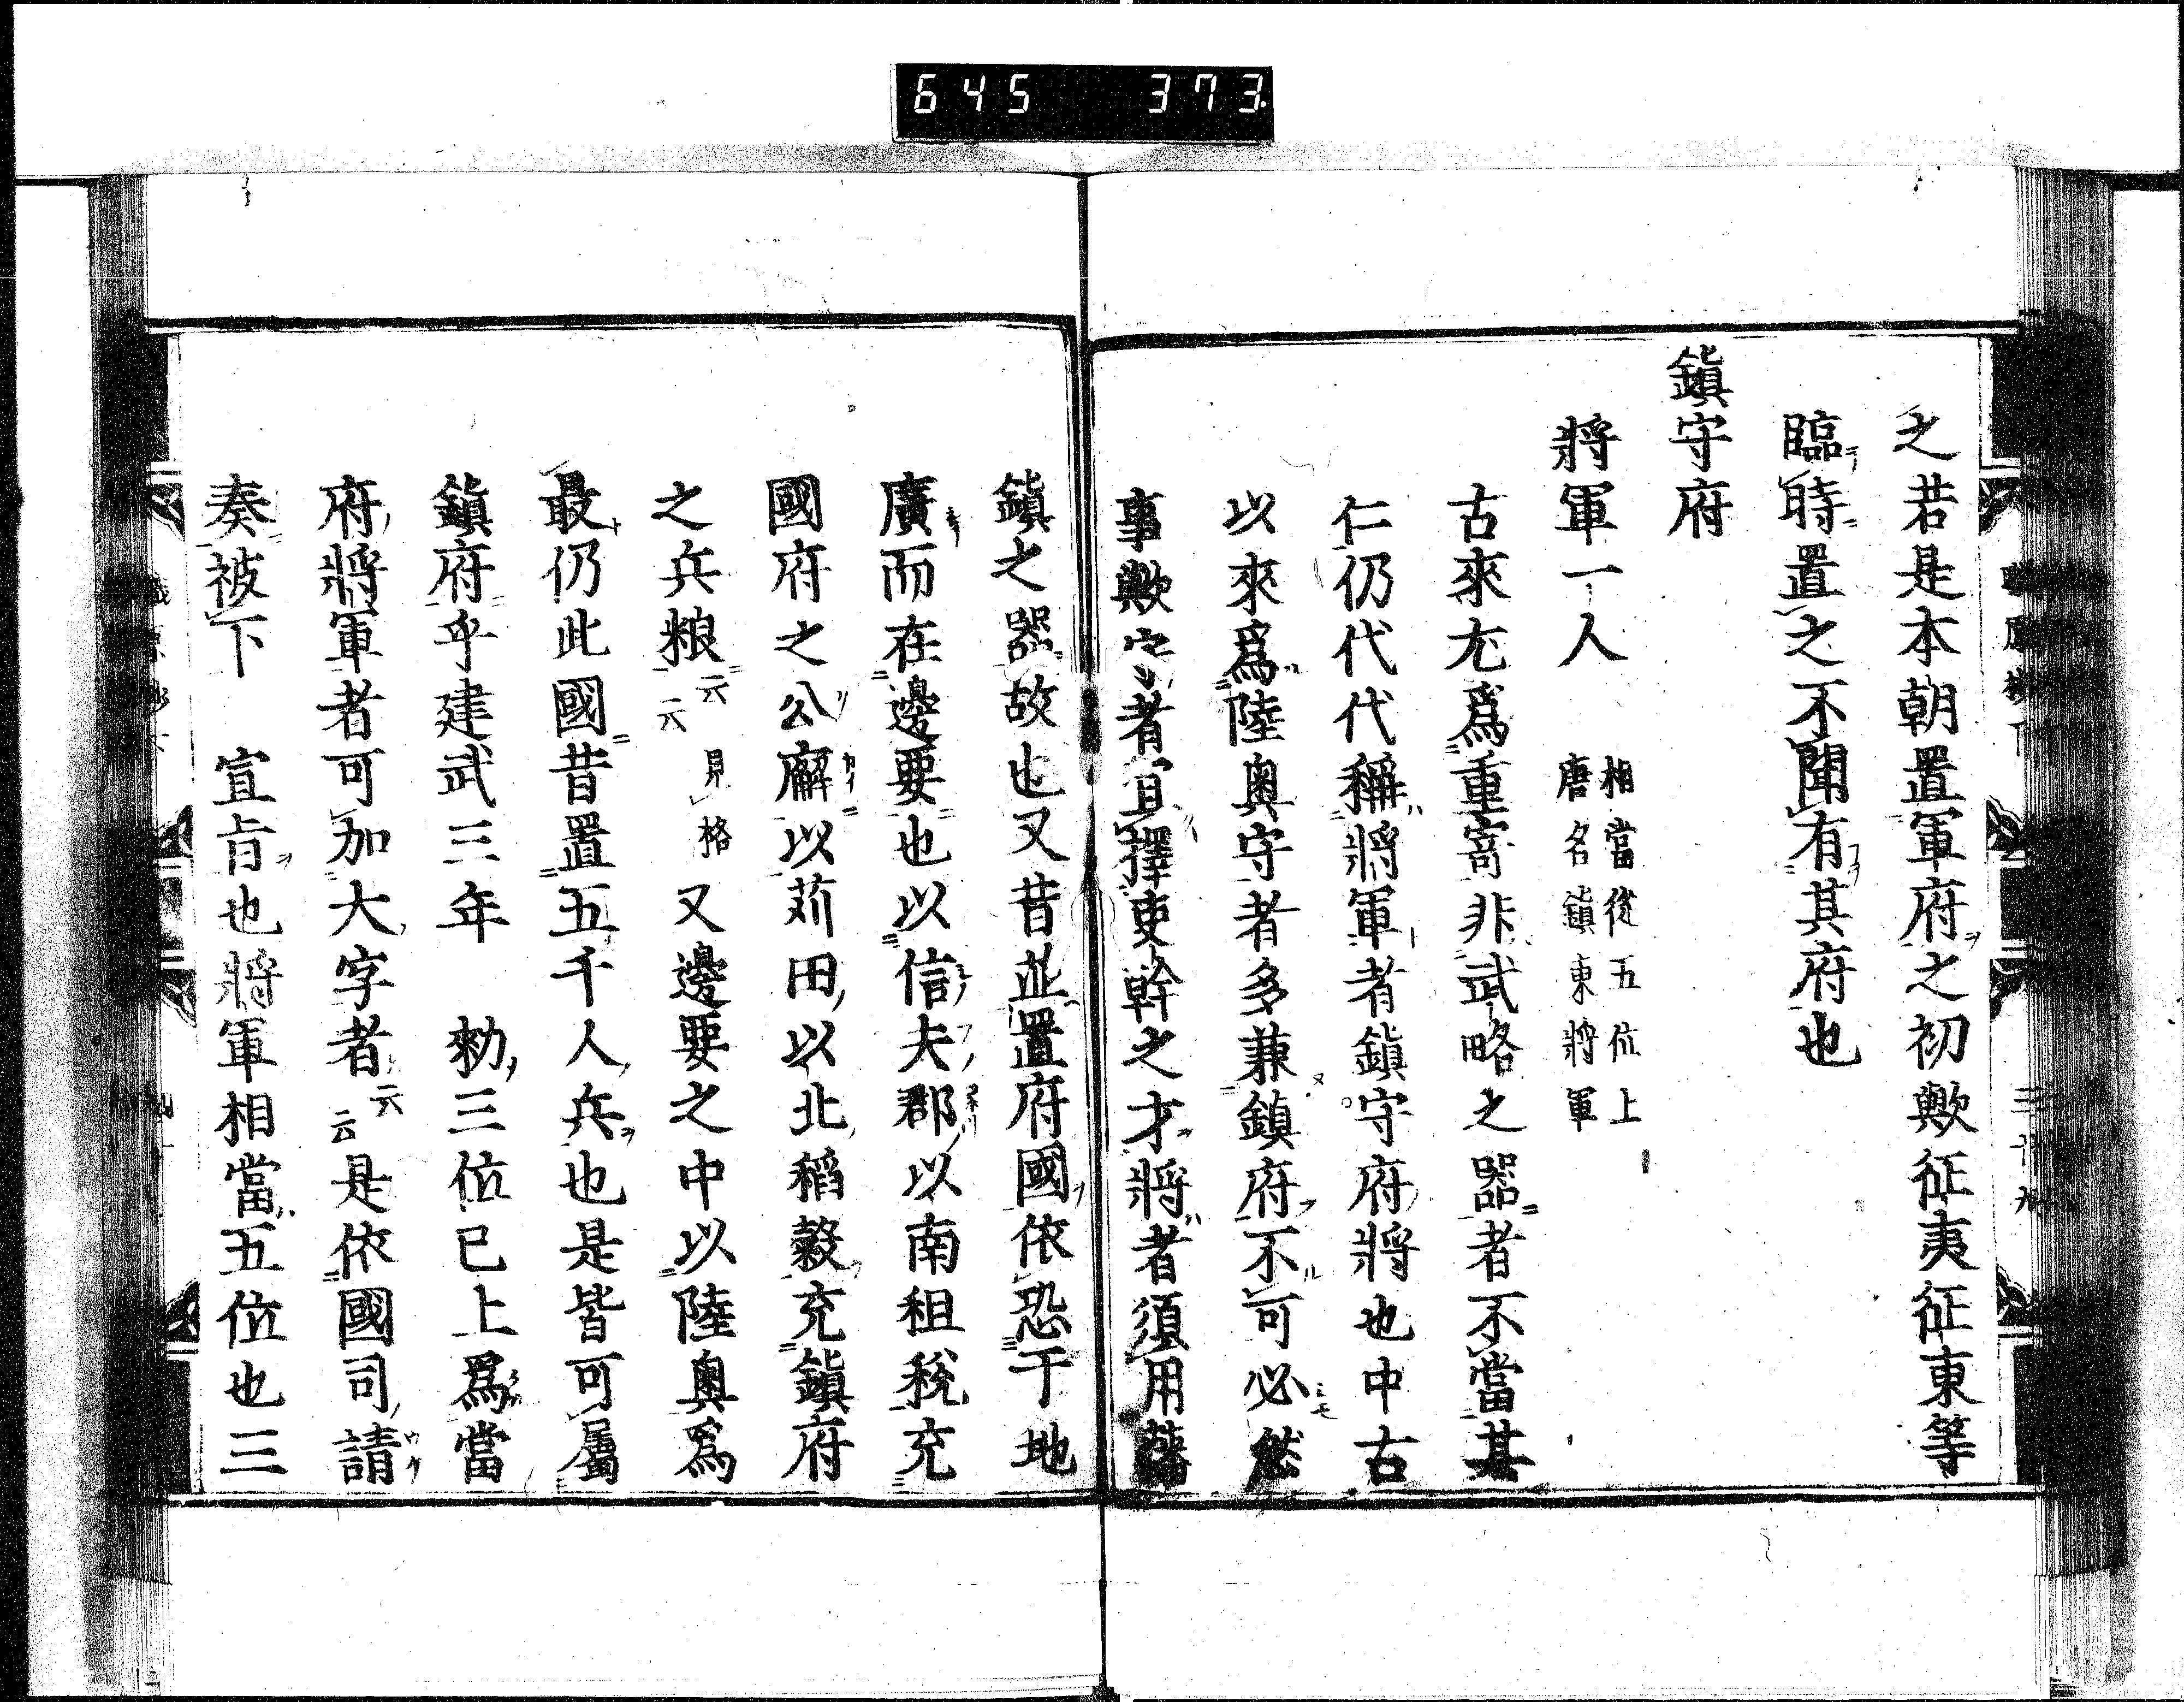 645 373.
之若是本朝置軍府之初歟征夷征東等
臨時置之不聞有其府也
鎮守府
將軍一人 相當從五位上
唐名鎮東將軍
古來尤爲重寄非武略之器者不當其
仁仍代代稱將軍者鎮守府將也中古
以來爲陸奧守者多兼鎮府不可必然
事歟守者宜擇吏幹之才將者須用藩
鎮之器故也又昔並置府國依恐于地
廣而在邊要也以信夫郡以南租稅充
國府之公廨以苅田以北稻穀充鎮府
之兵粮云云見格又邊要之中以陸奧爲
最仍此國昔置五千人兵也是皆可屬
鎮府乎建武三年 勑三位已上爲當
府將軍者可加大字者云云是依國司請
奏被下 宣旨也將軍相當五位也三